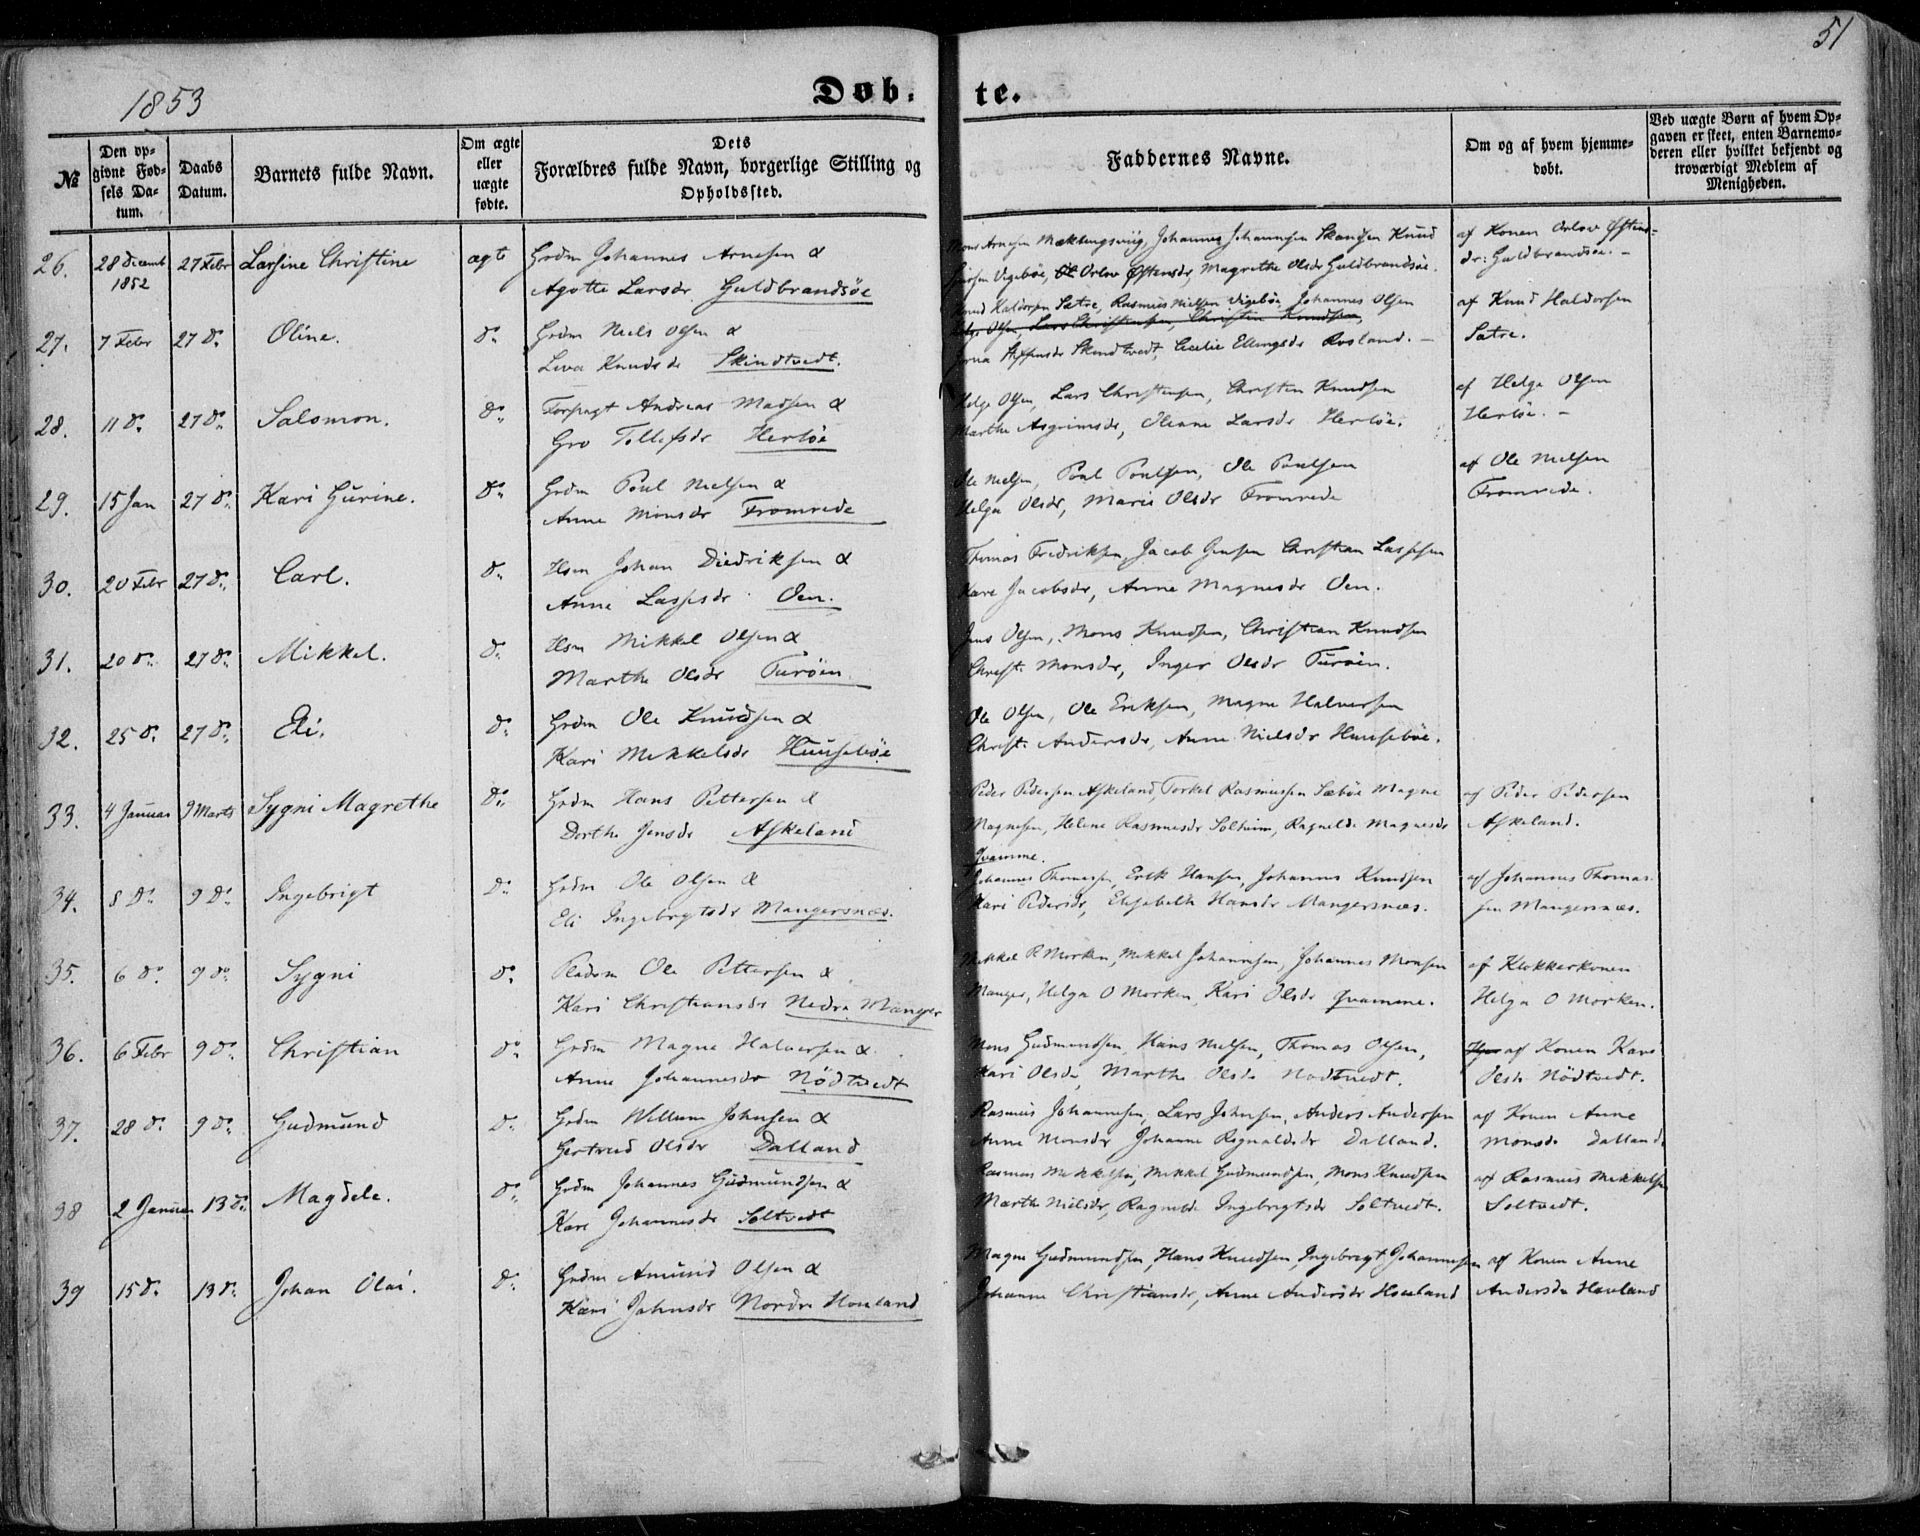 51
1853
Døb. te.
№
Den op-
givne Fød-
sels Da-
tum.
Daabs
Datum.
Barnets fulde Navn.
Om ægte
eller
uægte
fødte.
Dets
Forældres fulde Navn, borgerlige Stilling og
Opholdssted.
Faddernes Navne.
Om og af hvem hjemme-
døbt.
Ved uægte Børn af hvem Op-
gaven er skeet, enten Barnemo-
deren eller hvilket bekjendt og
troværdigt Medlem af
Menigheden.
26. 28 Decemb 27 Febr Larsine Christine ægt Grdm Johannes Arnesen & Mons Arnesen Johannes Johannesen Skansen Knud af Konen Orlov Østens-
1852 Agotte Larsdr Guldbrandsöe Vigebøe, Orlov Østensdr, Magrethe Olsdr Guldbrandsöe. dr: Guldbrandsöe. –
27. 7 Febr 27 do. Oline. do. Grdm Niels Olsen & Knud Haldorsen Satre, Rasmus Nielsen Vigebøe, Johannes Olsen af Knud Haldorsen
Helge Olsen, Lars Christensen, Christen Knudsen,
Knudsdr Skindtvedt. Skindtvedt, Cecilie Ellingsdr Rosland. – Satre.
28. 11 do. 27 do. Salomon. do. Andreas Madsen & Helge Olsen, Lars Christensen, Christen Knudsen af Helge Olsen
Gro Tollefsdr Herløe Marthe Asgrimsdr, Olenne Larsdr Herløe. Herløe. –
29. 15 Jan 27 do. Kari Gurine. do. Grdm Poul Nielsen & Ole Nielsen, Poul Poulsen, Ole Poulsen af Ole Nielsen
Anne Monsdr Fromrede Helga Olsdr, Maris Olsdr Fromrede Fromrede.
30. 20 Febr 27 do. Carl. do. Hsm Johan Diedriksen & Thomas Fredriksen, Jacob Jensen Christian Lassesen
Anne Lassesdr Oen. Kare Jacobsdr, Anne Magnesdr Oen.
31. 20 do. 27 do. Mikkel. do. Hsm Mikkel Olsen & Jens Olsen, Mons Knudsen, Christian Knudsen
Marthe Olsdr Turöen. Christ: Monsdr, Inger Olsdr Turöen.
32. 25 do. 27 do. Eli. do. Grdm Ole Knudsen & Ole Olsen, Ole Eriksen, Magne Halversen
Kari Mikkelsdr Huusebøe Christ: Andersdr, Anne Nielsdr Huusebøe.
33. 4 Januar 9 Marts Sygni Magrethe do. Grdm Hans Pettersen & Peder Pedersen Askeland, Torkel Rasmussen Sæbøe Magne af Peder Pedersen
Dorthe Jensdr Askeland Magnesen, Helene Rasmusdr Solheim, Ragnilde Magnesdr Askeland.
Qvamme.
34. 8 do 9 do. Ingebrigt do. Grdm Ole Olsen & Johannes Thomesen, Erik Hansen, Johannes Knudsen af Johannes Thomas-
Eli Ingebrigtsdr Mangersnæs. Kari Pedersdr, Elisabeth Hansdr Mangersnæs. sen Mangersnæs.
35. 6 do. 9 do Sygni do. Pladsm Ole Pettersen & Mikkel R Morken, Mikkel Johannesen, Johannes Monsen af Klokkerkonen
Kari Christiansdr Nedre Manger Manger, Helga O Morken, Kari Olsdr Qvamme. Helga O Morken.
36. 6 Febr 9 do. Christian do. Grdm Magne Halversen & Mons Gudmundsen, Hans Nielsen, Thomas Olsen, af Konen Kari
Anne Johannesdr Nödtvedt Kari Olsdr, Marthe Olsdr Nödtvedt. Olsdr Nödtvedt.
37. 28 do. 9 do. Gudmund do. Grdm Willum Johnsen & Rasmus Johannesen, Lars Johnsen, Anders Andersen af Konen Anne
Gertrud Olsdr Dalland Anne Monsdr Johanne Rognaldsdr Dalland. Monsdr Dalland.
38 2 Januar 13 do. Magdele. do. Grdm Johannes Gudmundsen & Rasmus Mikkelsen, Mikkel Gudmundsen, Mons Knudsen af Rasmus Mikkelsen
Kare Johannesdr Soltvedt Marthe Nielsdr, Ragnilde Ingebrigtsdr Soltvedt. Soltvedt.
39 15 do. 13 do. Johan Olai. do. Grdm Amund Olsen & Magne Gudmundsen, Hans Knudsen, Ingebrigt Johannesen af Konen Anne
Kari Johnsdr Nordre Houland Johanne Christiansdr, Anne Andersdr Houland Andersdr Houland